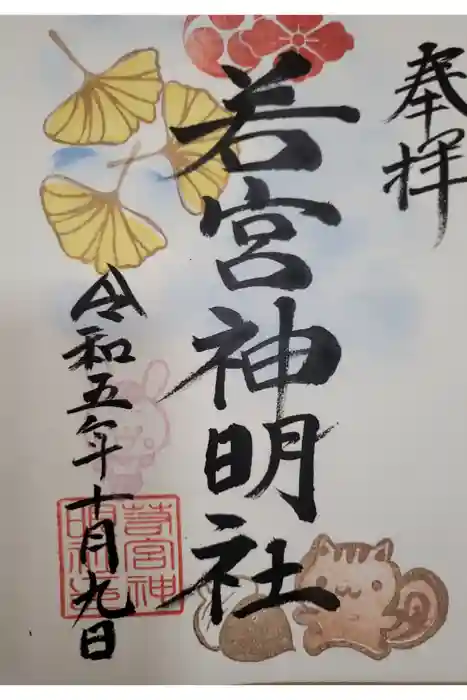 奉拝
若宮神明社
令和五年十月九日
若宮神
明社